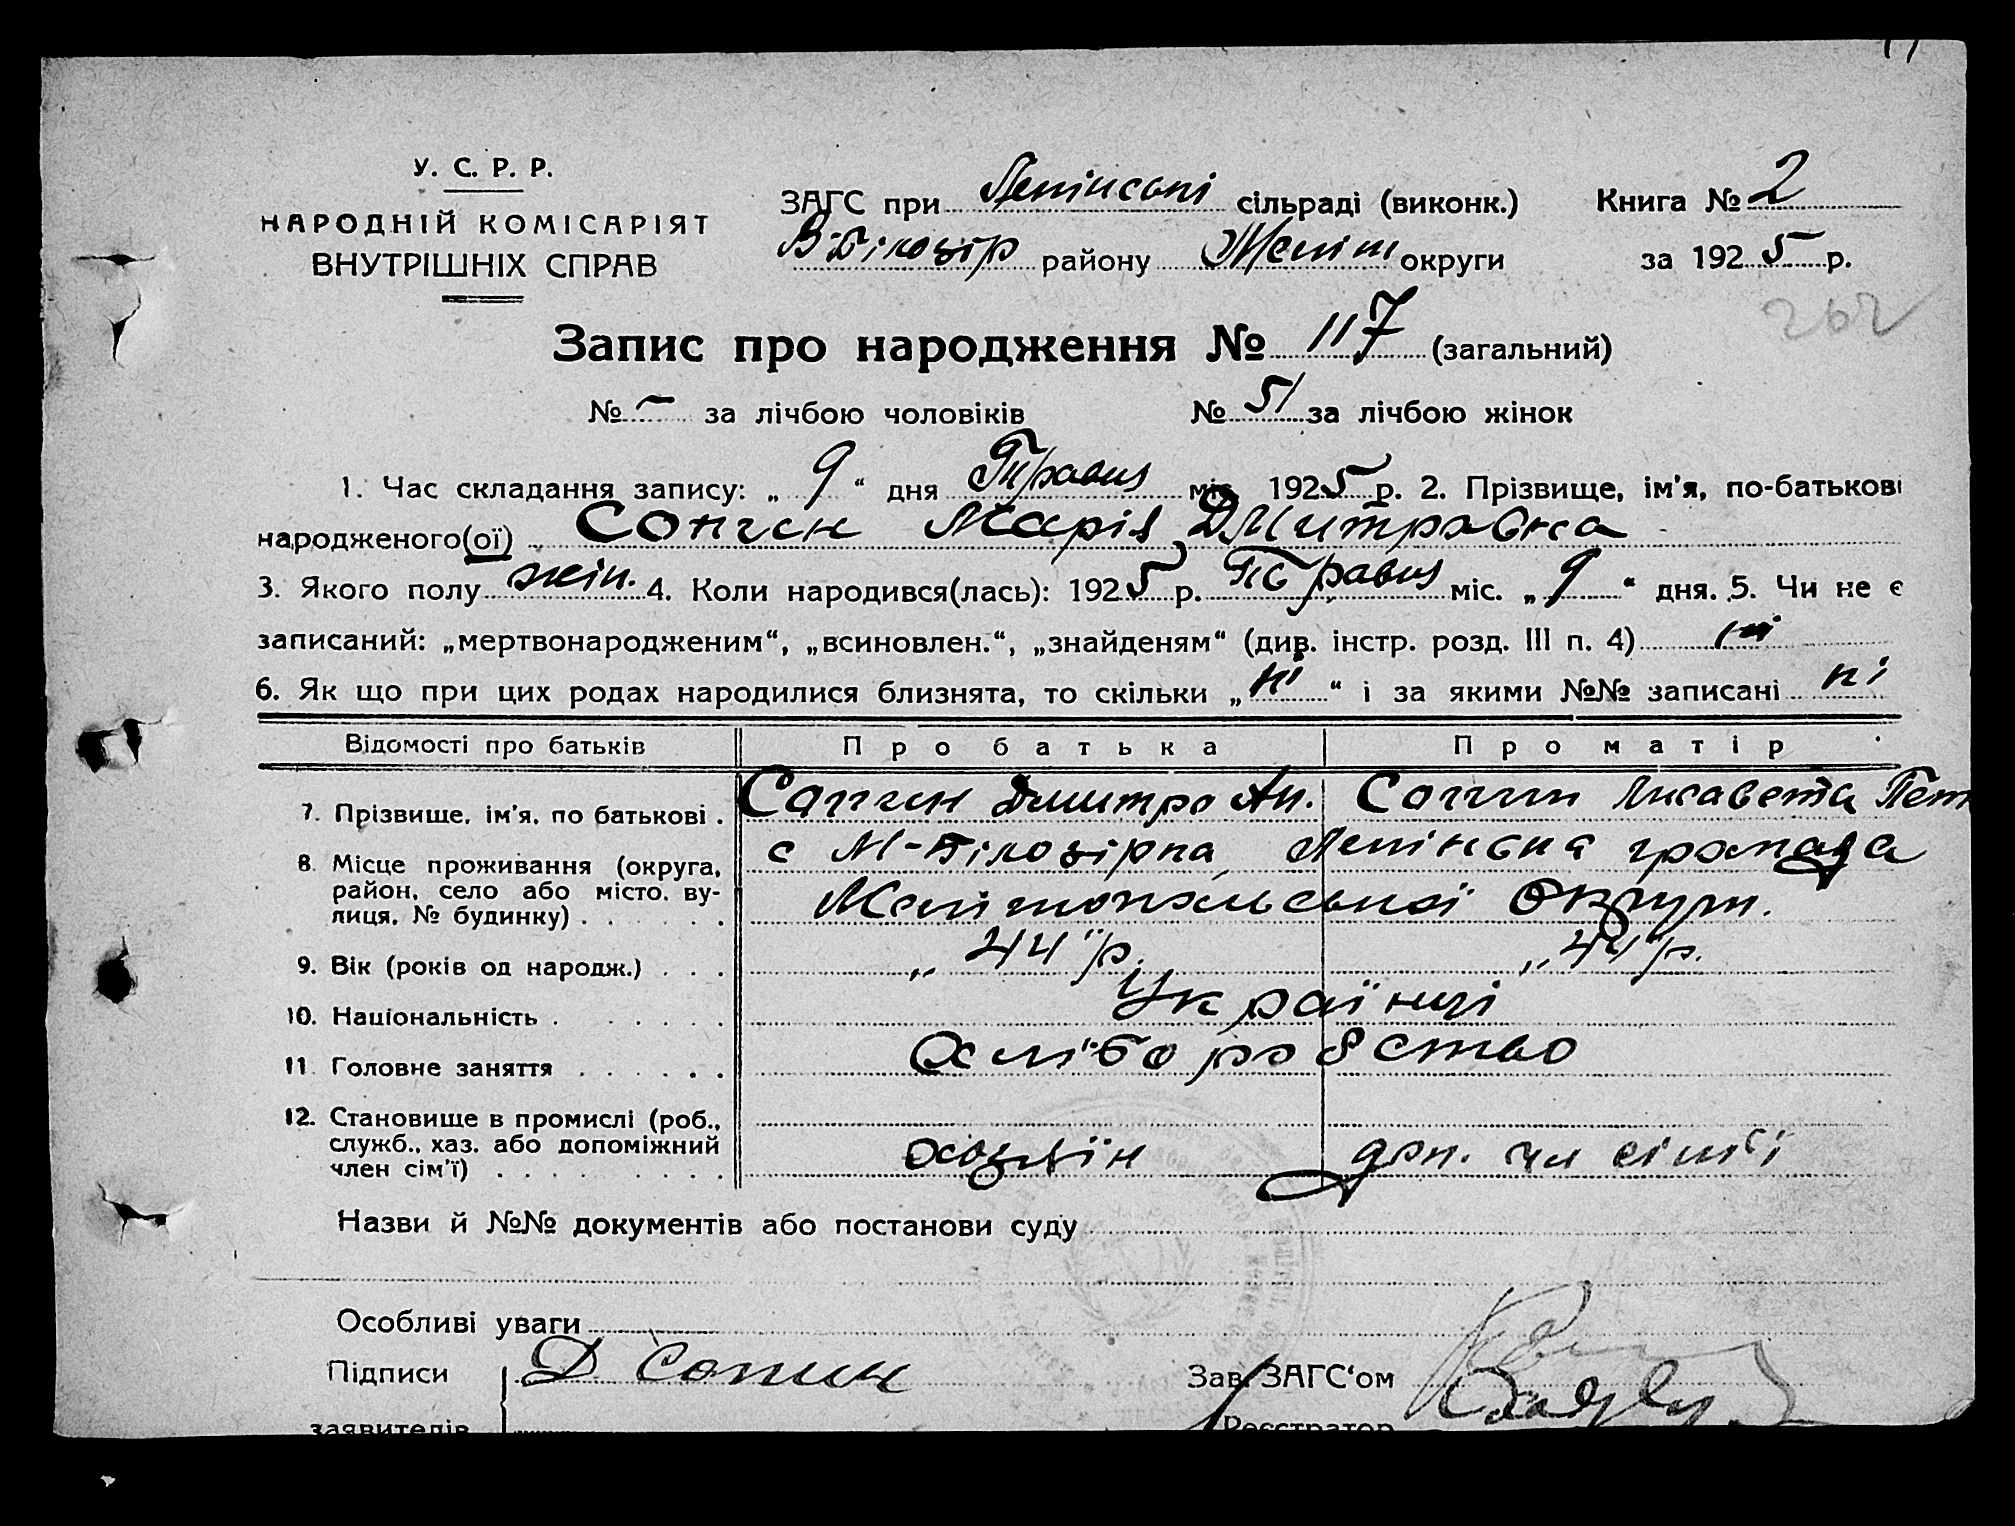 У. С. Р. Р.
НАРОДНІЙ КОМІСАРІЯТ
ВНУТРІШНІХ СПРАВ
ЗАГС при Ленінські сільраді (виконк.) Книга № 2
В-Білозір району Меліт округи за 1925 р.
262
Запис про народження № 117 (загальний)
№ – за лічбою чоловіків № 51 за лічбою жінок
1. Час складання запису: „ 9 “ дня Травня міс. 1925 р. 2. Прізвище, ім'я, по-батькові
народженого(ої) Сопчен Марія Дмитровна
3. Якого полу жін. 4. Коли народився(лась): 1925 р. Травня міс. „ 9 “ дня. 5. Чи не є
записаний: „мертвонародженим“, „всиновлен.“, „знайденям“ (див. інстр. розд. III п. 4) ні
6. Як що при цих родах народилися близнята, то скільки „ ні “ і за якими №№ записані ні
Відомості про батьків Про батька Про матір
7. Прізвище, ім'я, по батькові . Сопчен Дмитро Ан. Сопчен Лисавета Пет
8. Місце проживання (округа, район, село або місто, вулиця, № будинку) . . . . . . с М-Білозірка Ленінська громада
Мелітопольської Округи.
9. Вік (років од народж.) . . . „ 44 " р. „ 44 " р.
10. Національність . . . . . . Українці
11. Головне заняття . . . . . . Хліборобство
12. Становище в промислі (роб.,
служб., хаз. або допоміжний
член сім'ї) . . . . . . . . хозяїн доп. чл сімї
Назви й №№ документів або постанови суду
Особливі уваги
Підписи Д Сопчен Зав. ЗАГС‘ом
заявителів Реєстратор